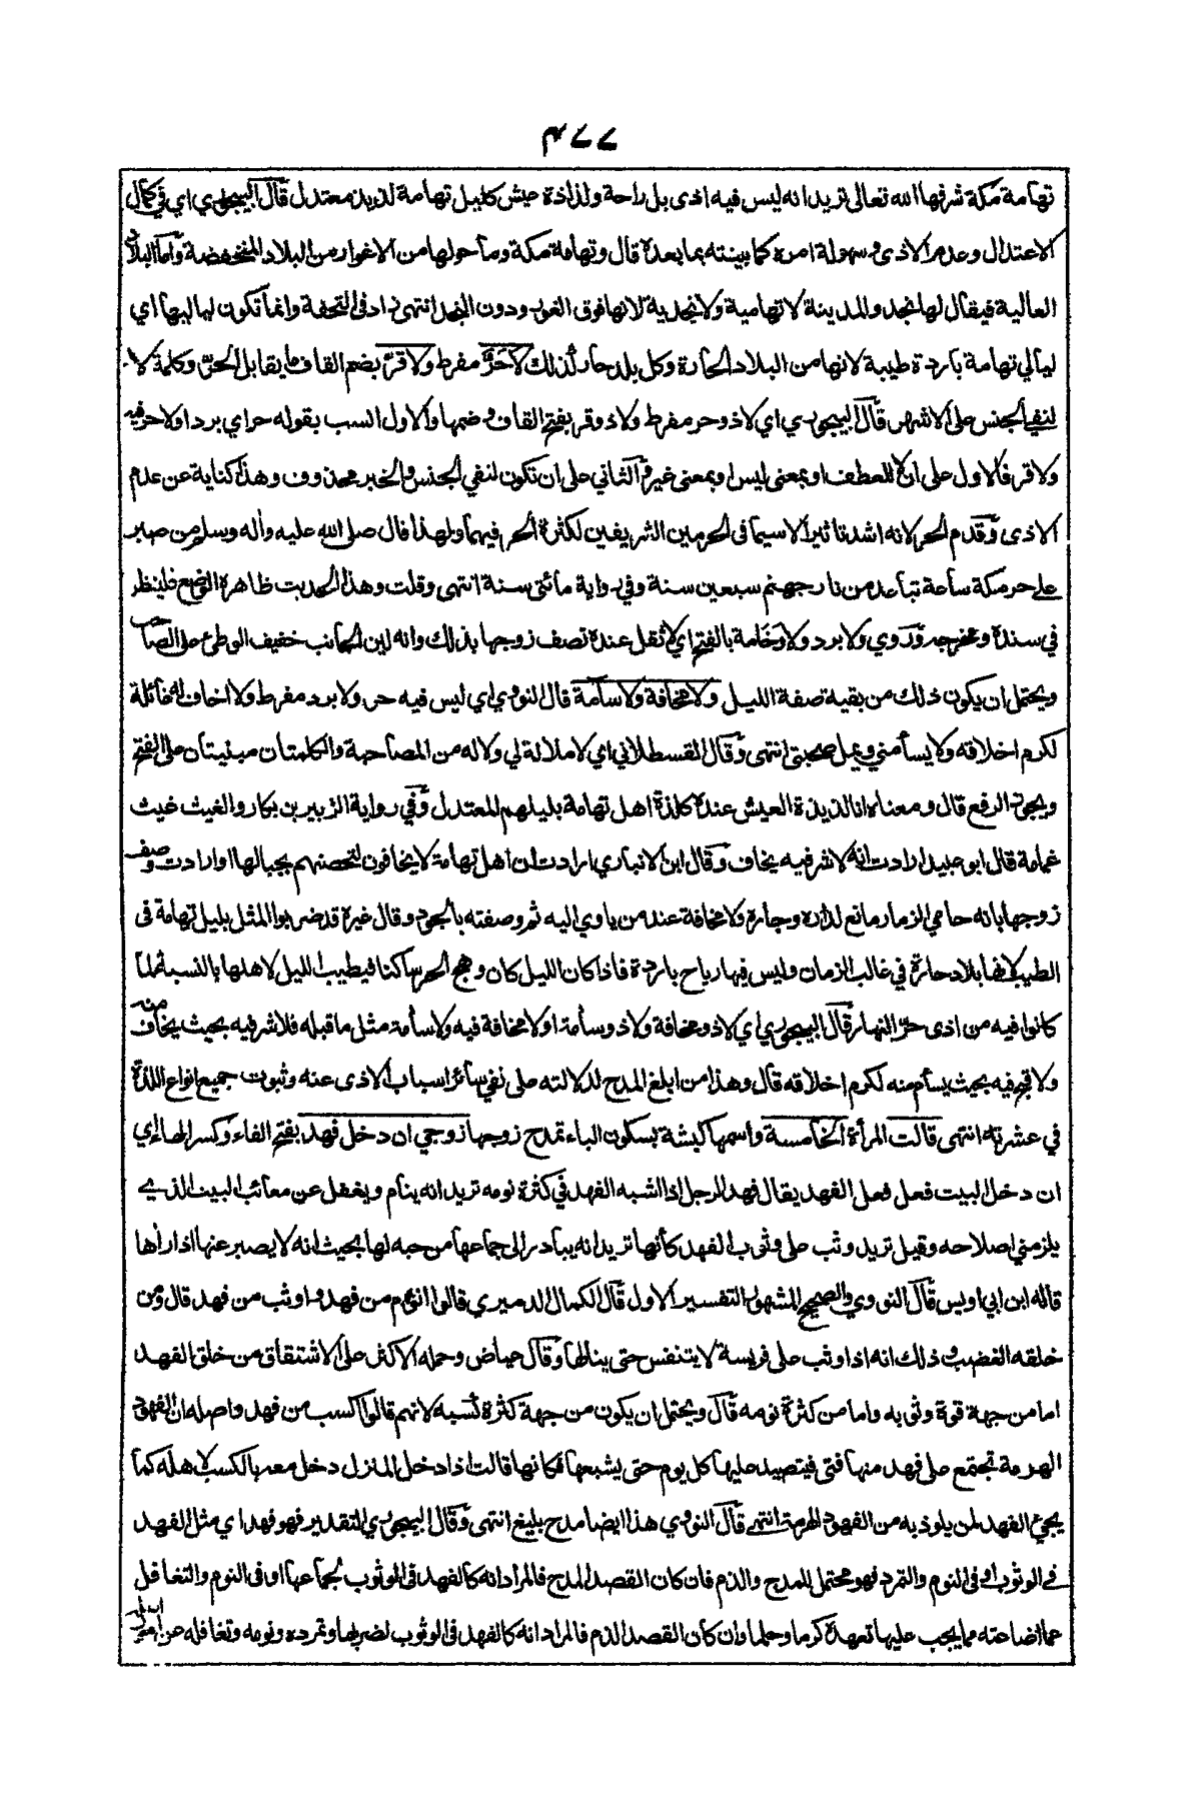 ٣٧٧
تهامة مكة شرفها الله تعالى تريد انه ليس فيه اذى بل راحة ولذاذة عيش كليل تهامة لذيذ معتدل قال البيجوري اي في كمال
الاعتدال وعدم الاذى وسهولة امره كما بينته بما بعده قال وتهامة مكة وما حولها من الاغوار من البلاد المنخفضة واما البلاد
العالية فيقال لها نجد والمدينة لا تهامية ولا نجدية لانها فوق الغور ودون النجد انتهى زاد في التحفة وانما تكون لياليها اي
ليالي تهامة باردة طيبة لانها من البلاد الحارة وكل بلد حار كذلك لا حر مفرط ولا قر بضم القاف ما يقابل الحر وكلمة لا
لنفي الجنس على الاشهر قال البيجوري اي لا ذو حر مفرط ولا ذو قر بفتح القاف وضمها والاول انسب بقوله حر اي برد اولا حر فيه
ولا قر فالاول على ان لا للعطف او بمعنى ليس او بمعنى غير والثاني على ان تكون لنفي الجنس والخبر محذوف وهذا كناية عن عدم
الاذى وقدم الحر لانه اشد تاثيرا لا سيما في الحرمين الشريفين لكثرة الحر فيهما ولهذا قال صلى الله عليه واله وسلم من صبر
على حر مكة ساعة تباعد من نار جهنم سبعين سنة وفي رواية مائتي سنة انتهى وقلت وهذا الحديث ظاهرة الوضع فلينظر
في سنده ومخرجه وروي ولا برد ولا وخامة بالفتح اي لا ثقل عنده تصف زوجها بذلك وانه لين الجانب خفيف الوطئ على الصاحب
ويحتمل ان يكون ذلك من بقية صفة الليل ولا مخافة ولا سآمة قال النووي اي ليس فيه حر ولا برد مفرط ولا اخاف له غائلة
لكرم اخلاقه ولا يسأمني ويمل صحبتي انتهى وقال القسطلاني اي لا ملالة لي ولا له من المصاحبة والكلمتان مبنيتان على الفتح
ويجوز الرفع قال ومعناه انا لذيذة العيش عنده كلذة اهل تهامة بليلهم المعتدل وفي رواية الزبير بن بكار والغيث غيث
غمامة قال ابو عبيد ارادت انه لا شر فيه يخاف وقال ابن الانباري ارادت ان اهل تهامة لا يخافون لتحصنهم بجبالها او ارادت وصف
زوجها بانه حامي الزمار مانع لداره وجاره ولا مخافة عند من ياوي اليه ثم وصفته بالجود وقال غيره قد ضربوا المثل بليل تهامة في
الطيب لانها بلاد حارة في غالب الزمان وليس فيها رياح باردة فاذا كان الليل كان وهج الحر ساكنا فيطيب الليل لاهلها بالنسبة لما
كانوا فيه من اذى حر النهار قال البيجوري اي لا ذو مخافة ولا ذو سأمة او لا مخافة فيه ولا سأمة مثل ما قبله فلا شر فيه بحيث يخاف منه
ولا قبح فيه بحيث يسأم منه لكرم اخلاقه قال وهذا من ابلغ المدح لدلالته على نفي سائر اسباب الاذى عنه وثبوت جميع انواع اللذة
في عشرته انتهى قالت المرأة الخامسة واسمها كبشة بسكون الباء تمدح زوجها زوجي ان دخل فهد بفتح الفاء وكسر الهاء اي
ان دخل البيت فعل فعل الفهد يقال فهد الرجل اذا اشبه الفهد في كثرة نومه تريد انه ينام ويغفل عن معائب البيت الذي
يلزمني اصلاحه وقيل تريد وثب على وثوب الفهد كأنها تريد انه يبادر الى جماعها من حبه لها بحيث انه لا يصبر عنها اذا رأها
قاله ابن ابي اويس قال النووي والصحيح المشهور التفسير الاول قال الكمال الدميري قالوا انوم من فهد واوثب من فهد قال ومن
خلقه الغضب وذلك انه اذا وثب على فريسة لا يتنفس حتى ينالها وقال عياض وحمله الاكثر على الاشتقاق من خلق الفهد
اما من جهة قوة وثوبه واما من كثرة نومه قال ويحتمل ان يكون من جهة كثرة كسبه لانهم قالوا اكسب من فهد واصله ان الفهود
الهرمة تجتمع على فهد منها فتي فيتصيد عليها كل يوم حتى يشبعها فكانها قالت اذا دخل المنزل دخل معه بالكسب لاهله كما
يجيء الفهد لمن يلوذ به من الفهود الهرمة انتهى قال النووي هذا ايضا مدح بليغ انتهى وقال البيجوري التقدير فهو فهد اي مثل الفهد
في الوثوب او في النوم والتمرد فهو محتمل للمدح والذم فان كان القصد المدح فالمراد انه كالفهد في الوثوب لجماعها او في النوم والتغافل
عما اضاعته مما يجب عليها تعهده كرما وحلما وان كان القصد الذم فالمراد انه كالفهد في الوثوب لضربها وتمرده ونومه وتغافله عن